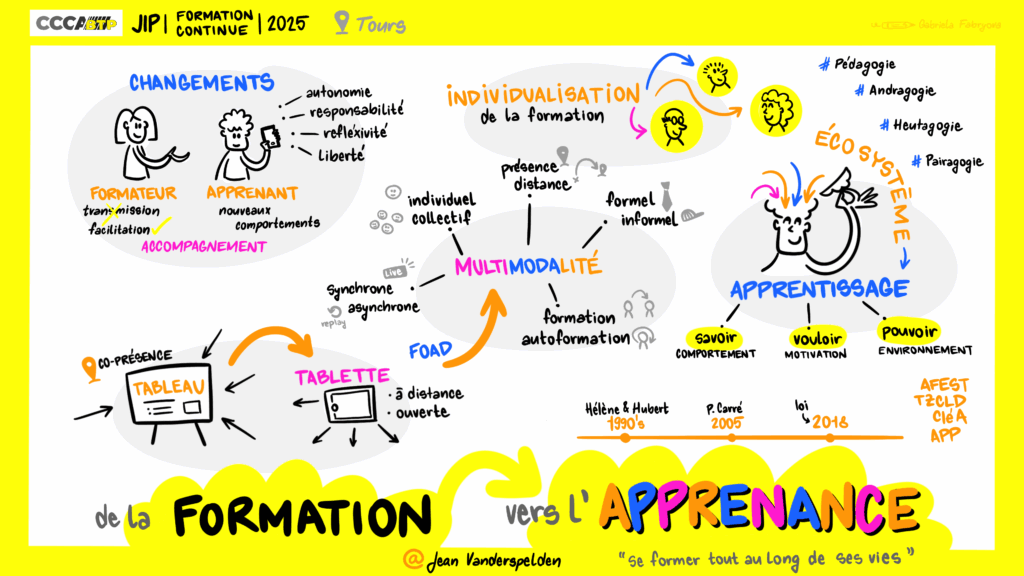 CCCA BTP
JIP | FORMATION CONTINUE | 2025
Tours
CHANGEMENTS
FORMATEUR
transmission
facilitation
APPRENANT
nouveaux
comportements
ACCOMPAGNEMENT
autonomie
responsabilité
refléxivité
liberté
INDIVIDUALISATION
de la formation
# Pédagogie
# Andragogie
# Heutagogie
# Pairagogie
présence
distance
individuel
collectif
formel
informel
MULTIMODALITÉ
Live
synchrone
asynchrone
replay
formation
autoformation
ÉCOSYSTÈME
APPRENTISSAGE
savoir
COMPORTEMENT
vouloir
MOTIVATION
pouvoir
ENVIRONNEMENT
CO-PRÉSENCE
TABLEAU
TABLETTE
FOAD
· à distance
· ouverte
Hélène & Hubert
1990's
P. Carré
2005
loi
2018
AFEST
TZCLD
CléA
APP
de la FORMATION
vers l' APPRENANCE
@ Jean Vanderspelden
"se former tout au long de ses vies"